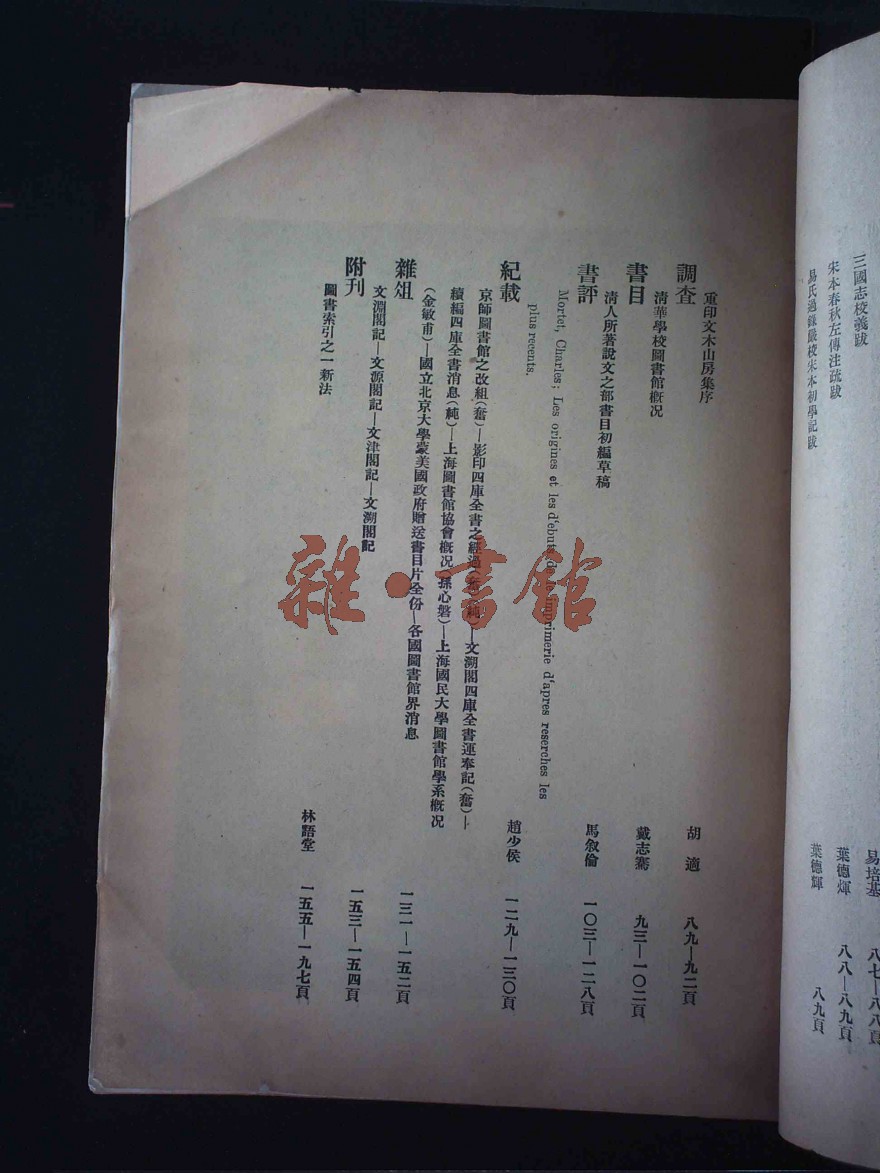 三國志校義跋
易培基
八七—八八頁
宋本春秋左傳注疏跋
葉德輝
八八—八九頁
易氏過錄嚴校宋本初學記跋
葉德輝
八九頁
重印文木山房集序
胡適
八九—九二頁
調查
清華學校圖書館概況
戴志騫
九三—一〇二頁
書目
清人所著說文之部書目初編草稿
馬敘倫
一〇三—一二八頁
書評
Mortet, Charles; Les origines et les d'ebuts de imprimerie d'apres reserches les
plus recents.
趙少侯
一二九—一三〇頁
紀載
京師圖書館之改組(奮)—影印四庫全書之經過(奮)(純)—文溯閣四庫全書運奉記(奮)—
續編四庫全書消息(純)—上海圖書館協會概況(孫心磐)—上海國民大學圖書館學系概況
(金敏甫)—國立北京大學蒙美國政府贈送書目片全份—各國圖書館界消息
一三一—一五二頁
雜俎
文淵閣記—文源閣記—文津閣記—文溯閣記
一五三—一五四頁
附刊
圖書索引之一新法
林語堂
一五五—一九七頁
雜·書館